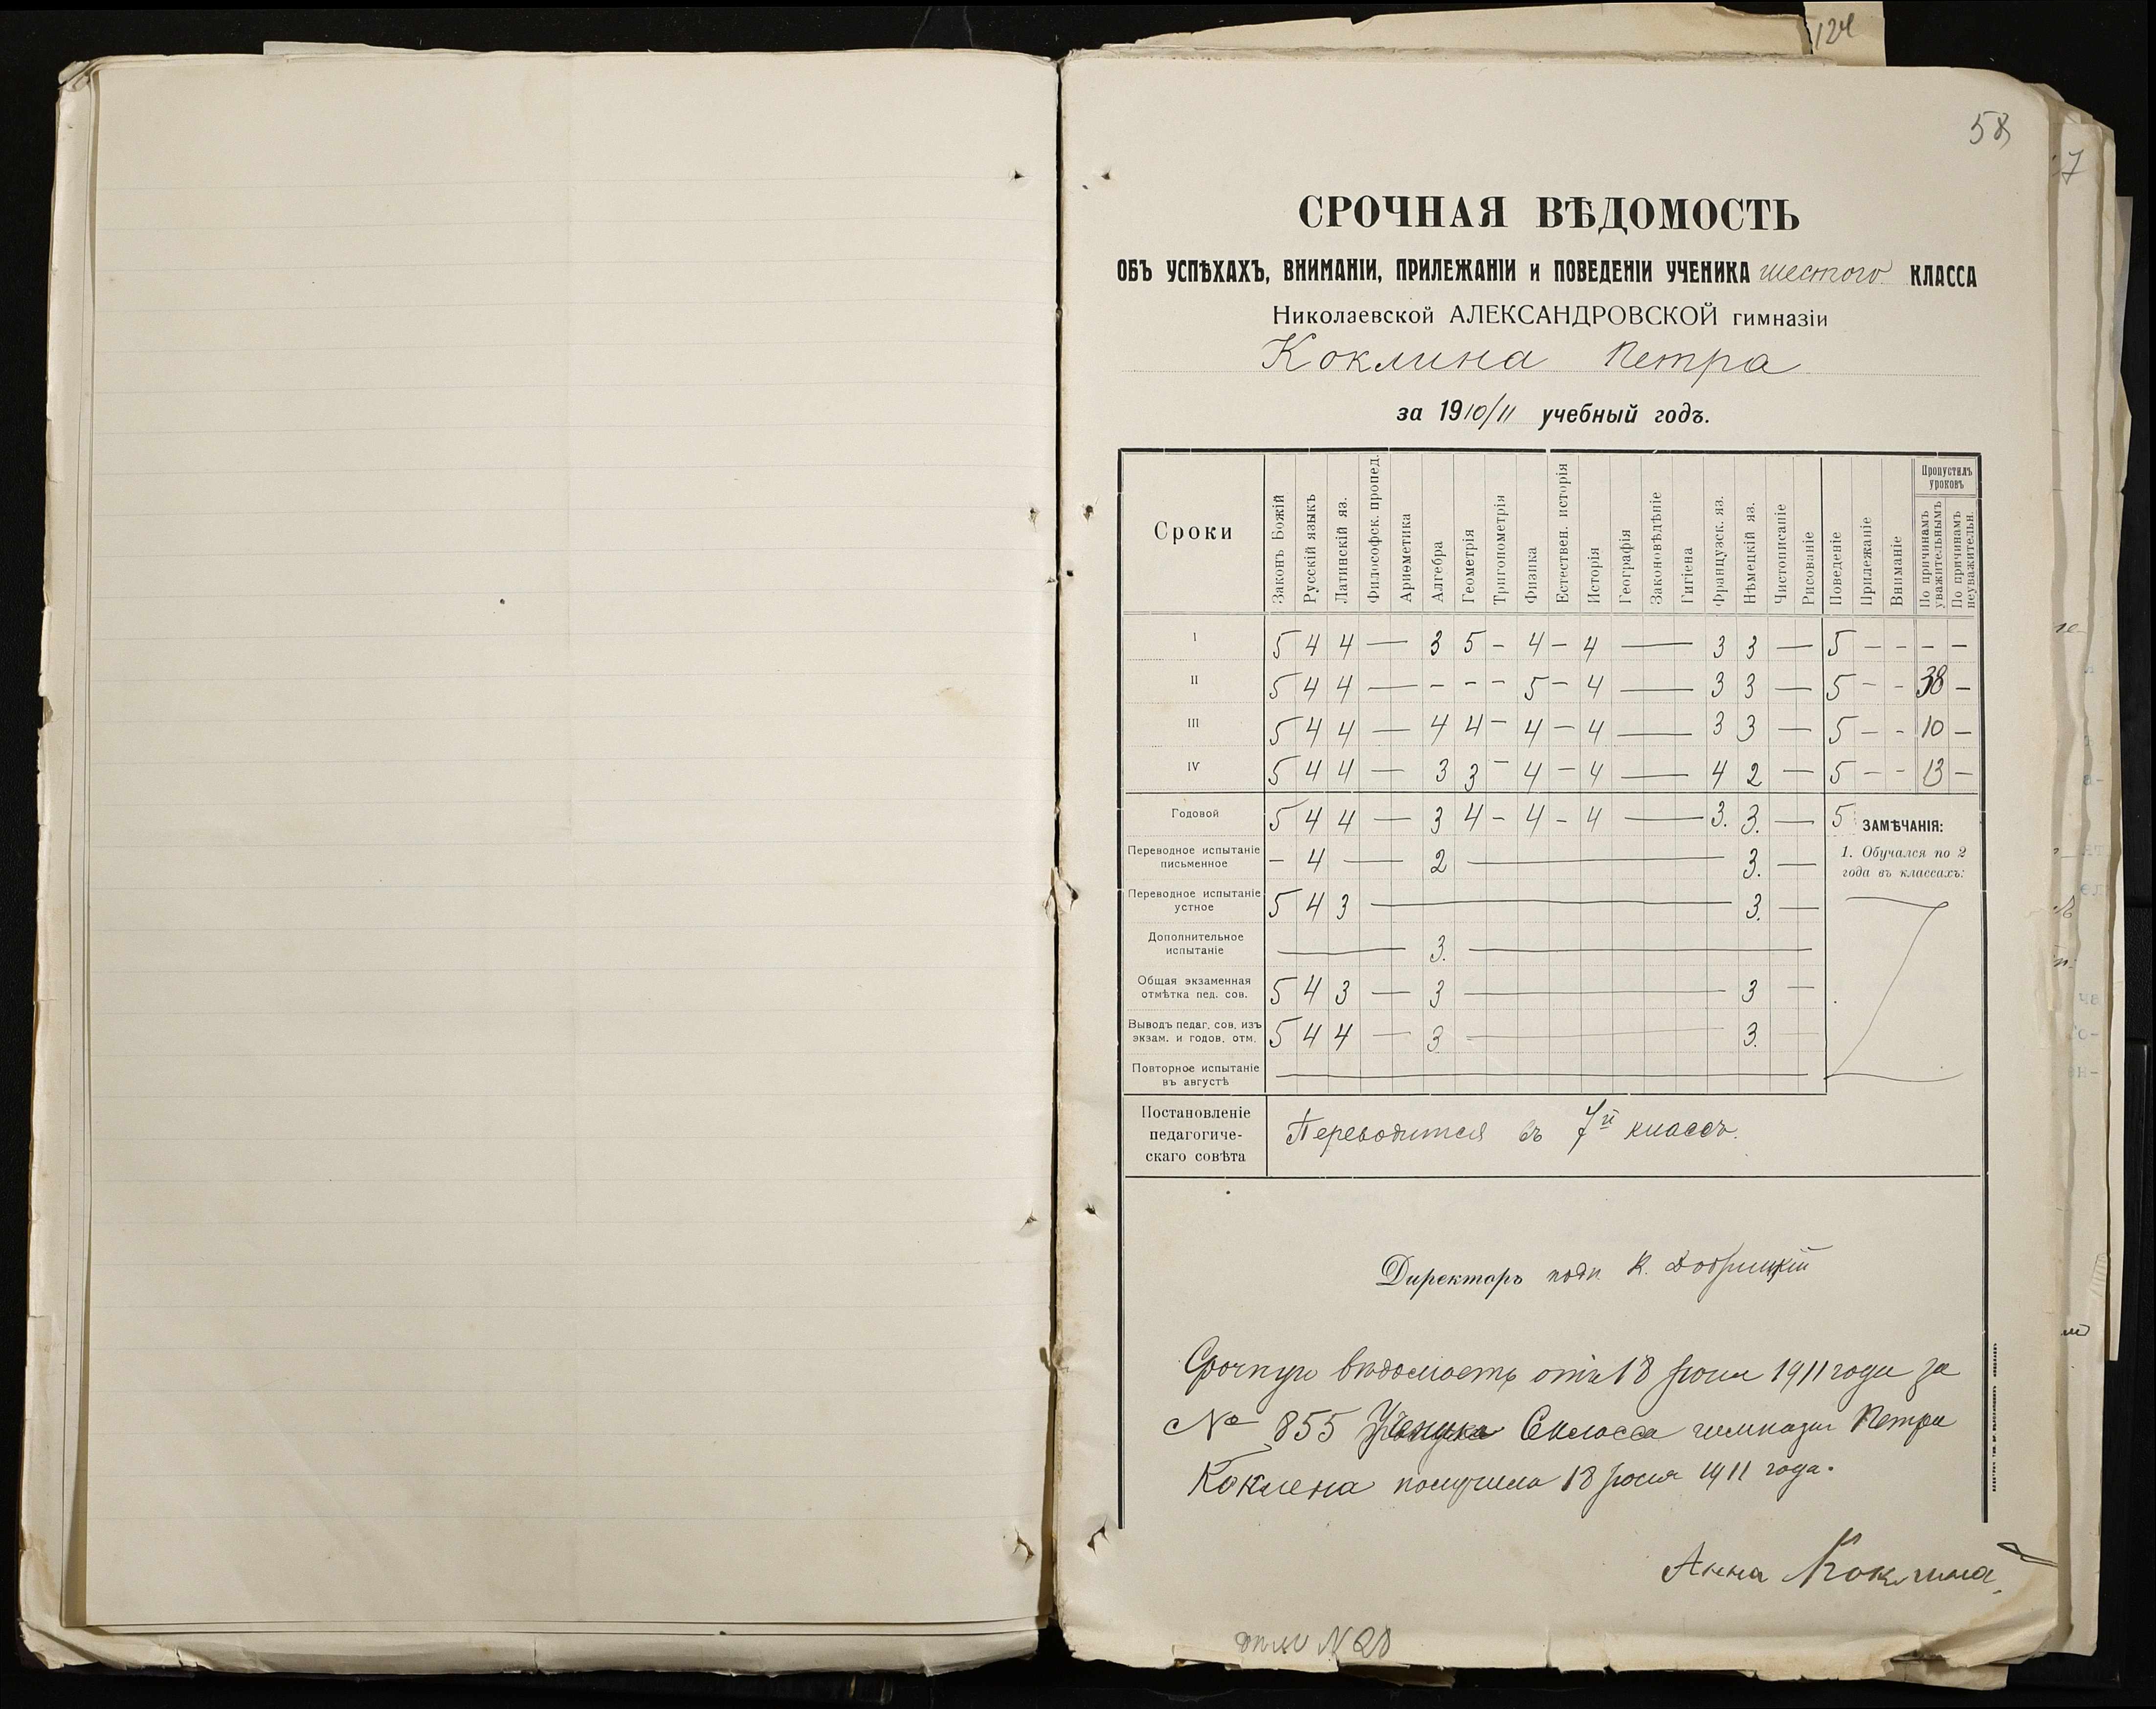 124
58
7
СРОЧНАЯ ВѢДОМОСТЬ
ОБЪ УСПѢХАХЪ, ВНИМАНІИ, ПРИЛЕЖАНІИ и ПОВЕДЕНІИ УЧЕНИКА шестого КЛАССА
Николаевской АЛЕКСАНДРОВСКОЙ гимназіи
Коклина Петра
за 1910/11 учебный годъ.
Сроки Законъ Божій Русскій языкъ Латинскій яз. Философск. пропед. Ариѳметика Алгебра Геометрія Тригонометрія Физика Естествен. исторія Исторія Географія Законовѣдѣніе Гигіена Французск. яз. Нѣмецкій яз. Чистописаніе Рисованіе Поведеніе Прилежаніе Вниманіе Пропустилъ уроковъ По причинамъ уважительнымъ По причинамъ неуважительн.
I 5 4 4 — 3 5 - 4 - 4 — 3 3 — 5 - - - -
II 5 4 4 — - - - 5 - 4 — 3 3 — 5 - - 38 -
III 5 4 4 — 4 4 - 4 - 4 — 3 3 — 5 - - 10 -
IV 5 4 4 — 3 3 - 4 - 4 — 4 2 — 5 - - 13 -
Годовой 5 4 4 — 3 4 - 4 - 4 — 3. 3. — 5
ЗАМѢЧАНІЯ:
1. Обучался по 2
года въ классахъ:
Переводное испытаніе
письменное - 4 — 2 — 3. —
Переводное испытаніе
устное 5 4 3 — 3. —
Дополнительное
испытаніе — 3. —
Общая экзаменная
отмѣтка пед. сов. 5 4 3 — 3 — 3 —
Выводъ педаг. сов. изъ
экзам. и годов. отм. 5 4 4 — 3 — 3. —
Повторное испытаніе
въ августѣ —
Постановленіе
педагогиче-
скаго совѣта
Переводится въ 7й классъ.
Директоръ подп К. Добрицкій
Срочную вѣдомость отъ 18 іюня 1911 года за
№ 855 Ученика 6 класса гимназіи Петра
Коклена получила 18 іюня 1911 года.
Анна Коклина
N 20